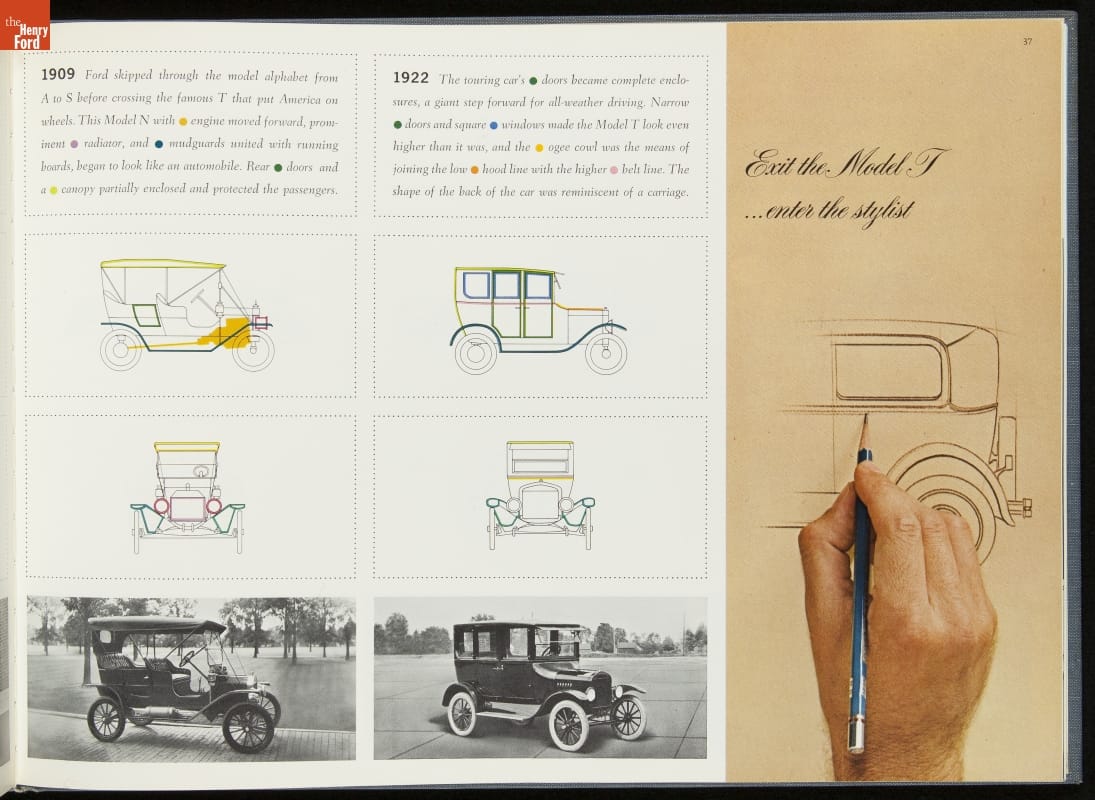 the
Henry
Ford
1909 Ford skipped through the model alphabet from
A to S before crossing the famous T that put America on
wheels. This Model N with engine moved forward, prom-
inent radiator, and mudguards united with running
boards, began to look like an automobile. Rear doors and
a canopy partially enclosed and protected the passengers.
1922 The touring car's doors became complete enclo-
sures, a giant step forward for all-weather driving. Narrow
doors and square windows made the Model T look even
higher than it was, and the ogee cowl was the means of
joining the low hood line with the higher belt line. The
shape of the back of the car was reminiscent of a carriage.
37
Exit the Model T
...enter the stylist